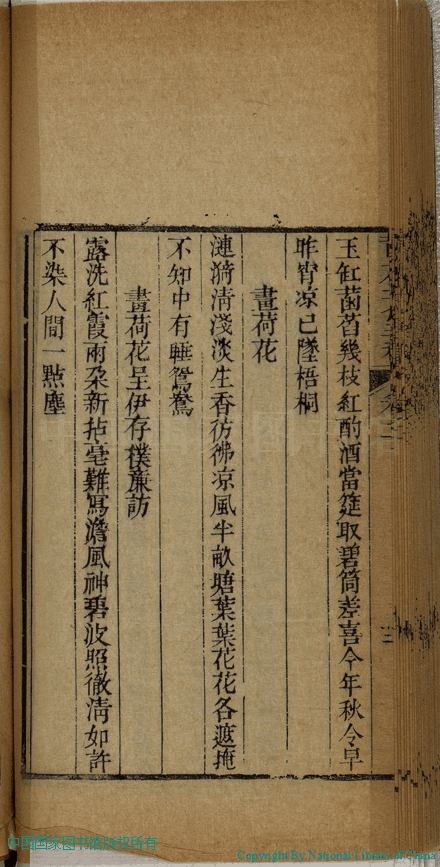 玉缸菡萏幾枝紅酌酒當筵取碧筒差喜今年秋令早
昨宵凉已墜梧桐
畫荷花
漣漪清淺淡生香彷彿凉風半畝塘葉葉花花各遮掩
不知中有睡鴛鴦
畫荷花呈伊存樸廉訪
露洗紅霞兩朶新拈毫難寫澹風神碧波照徹清如許
不染人間一點塵
中国国家图书馆版权所有
Copyright By National Library of China